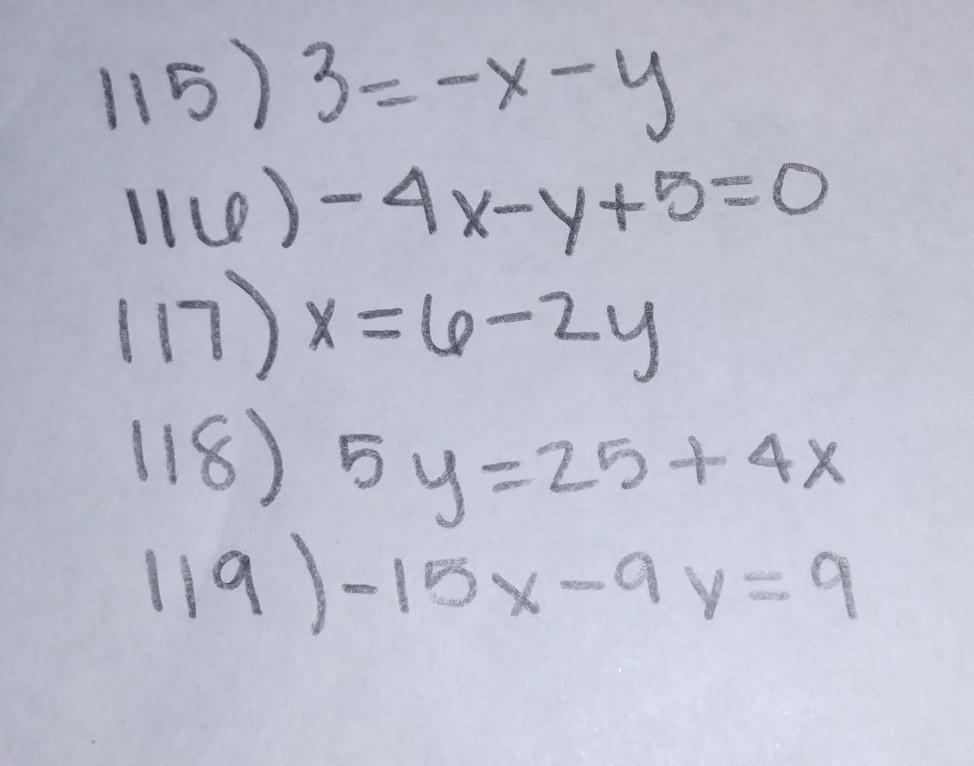 115) 3=-x-y
116) -4x-y+5=0
117) x=6-2y
118) 5y=25+4x
119) -15x-9y=9